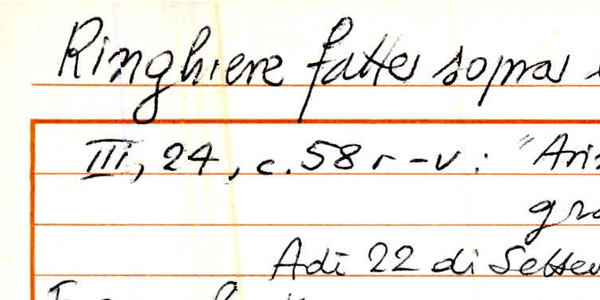 Ringhiere fatte sopra
III, 24, c. 58 r-v: "Aris
gra
Adi 22 di Settem